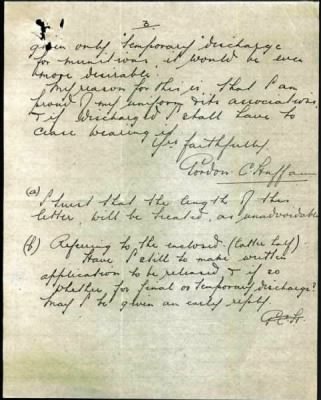 3
given only "temporary" discharge
for munitions, it would be even
more desirable.
My reason for this is that I am
proud of my uniform & its associations
& if discharged I shall have to
cease wearing it
Yrs faithfully
Gordon C
(a)
I trust that the length of this
letter will be treated, as unavoidable
(b) Referring to the enclosed (latter half) -
Have I still to make written
application to be released, & if so
whether for final or temporary discharge?
May I be given an early reply.